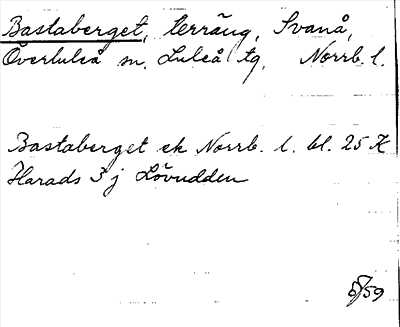 Bastaberget, terräng, Svanå,
Överluleå sn. Luleå tg. Norrb. l.
Bastaberget ek Norrb. l. bl. 25 K
Harads 3 j Lövudden
5/59